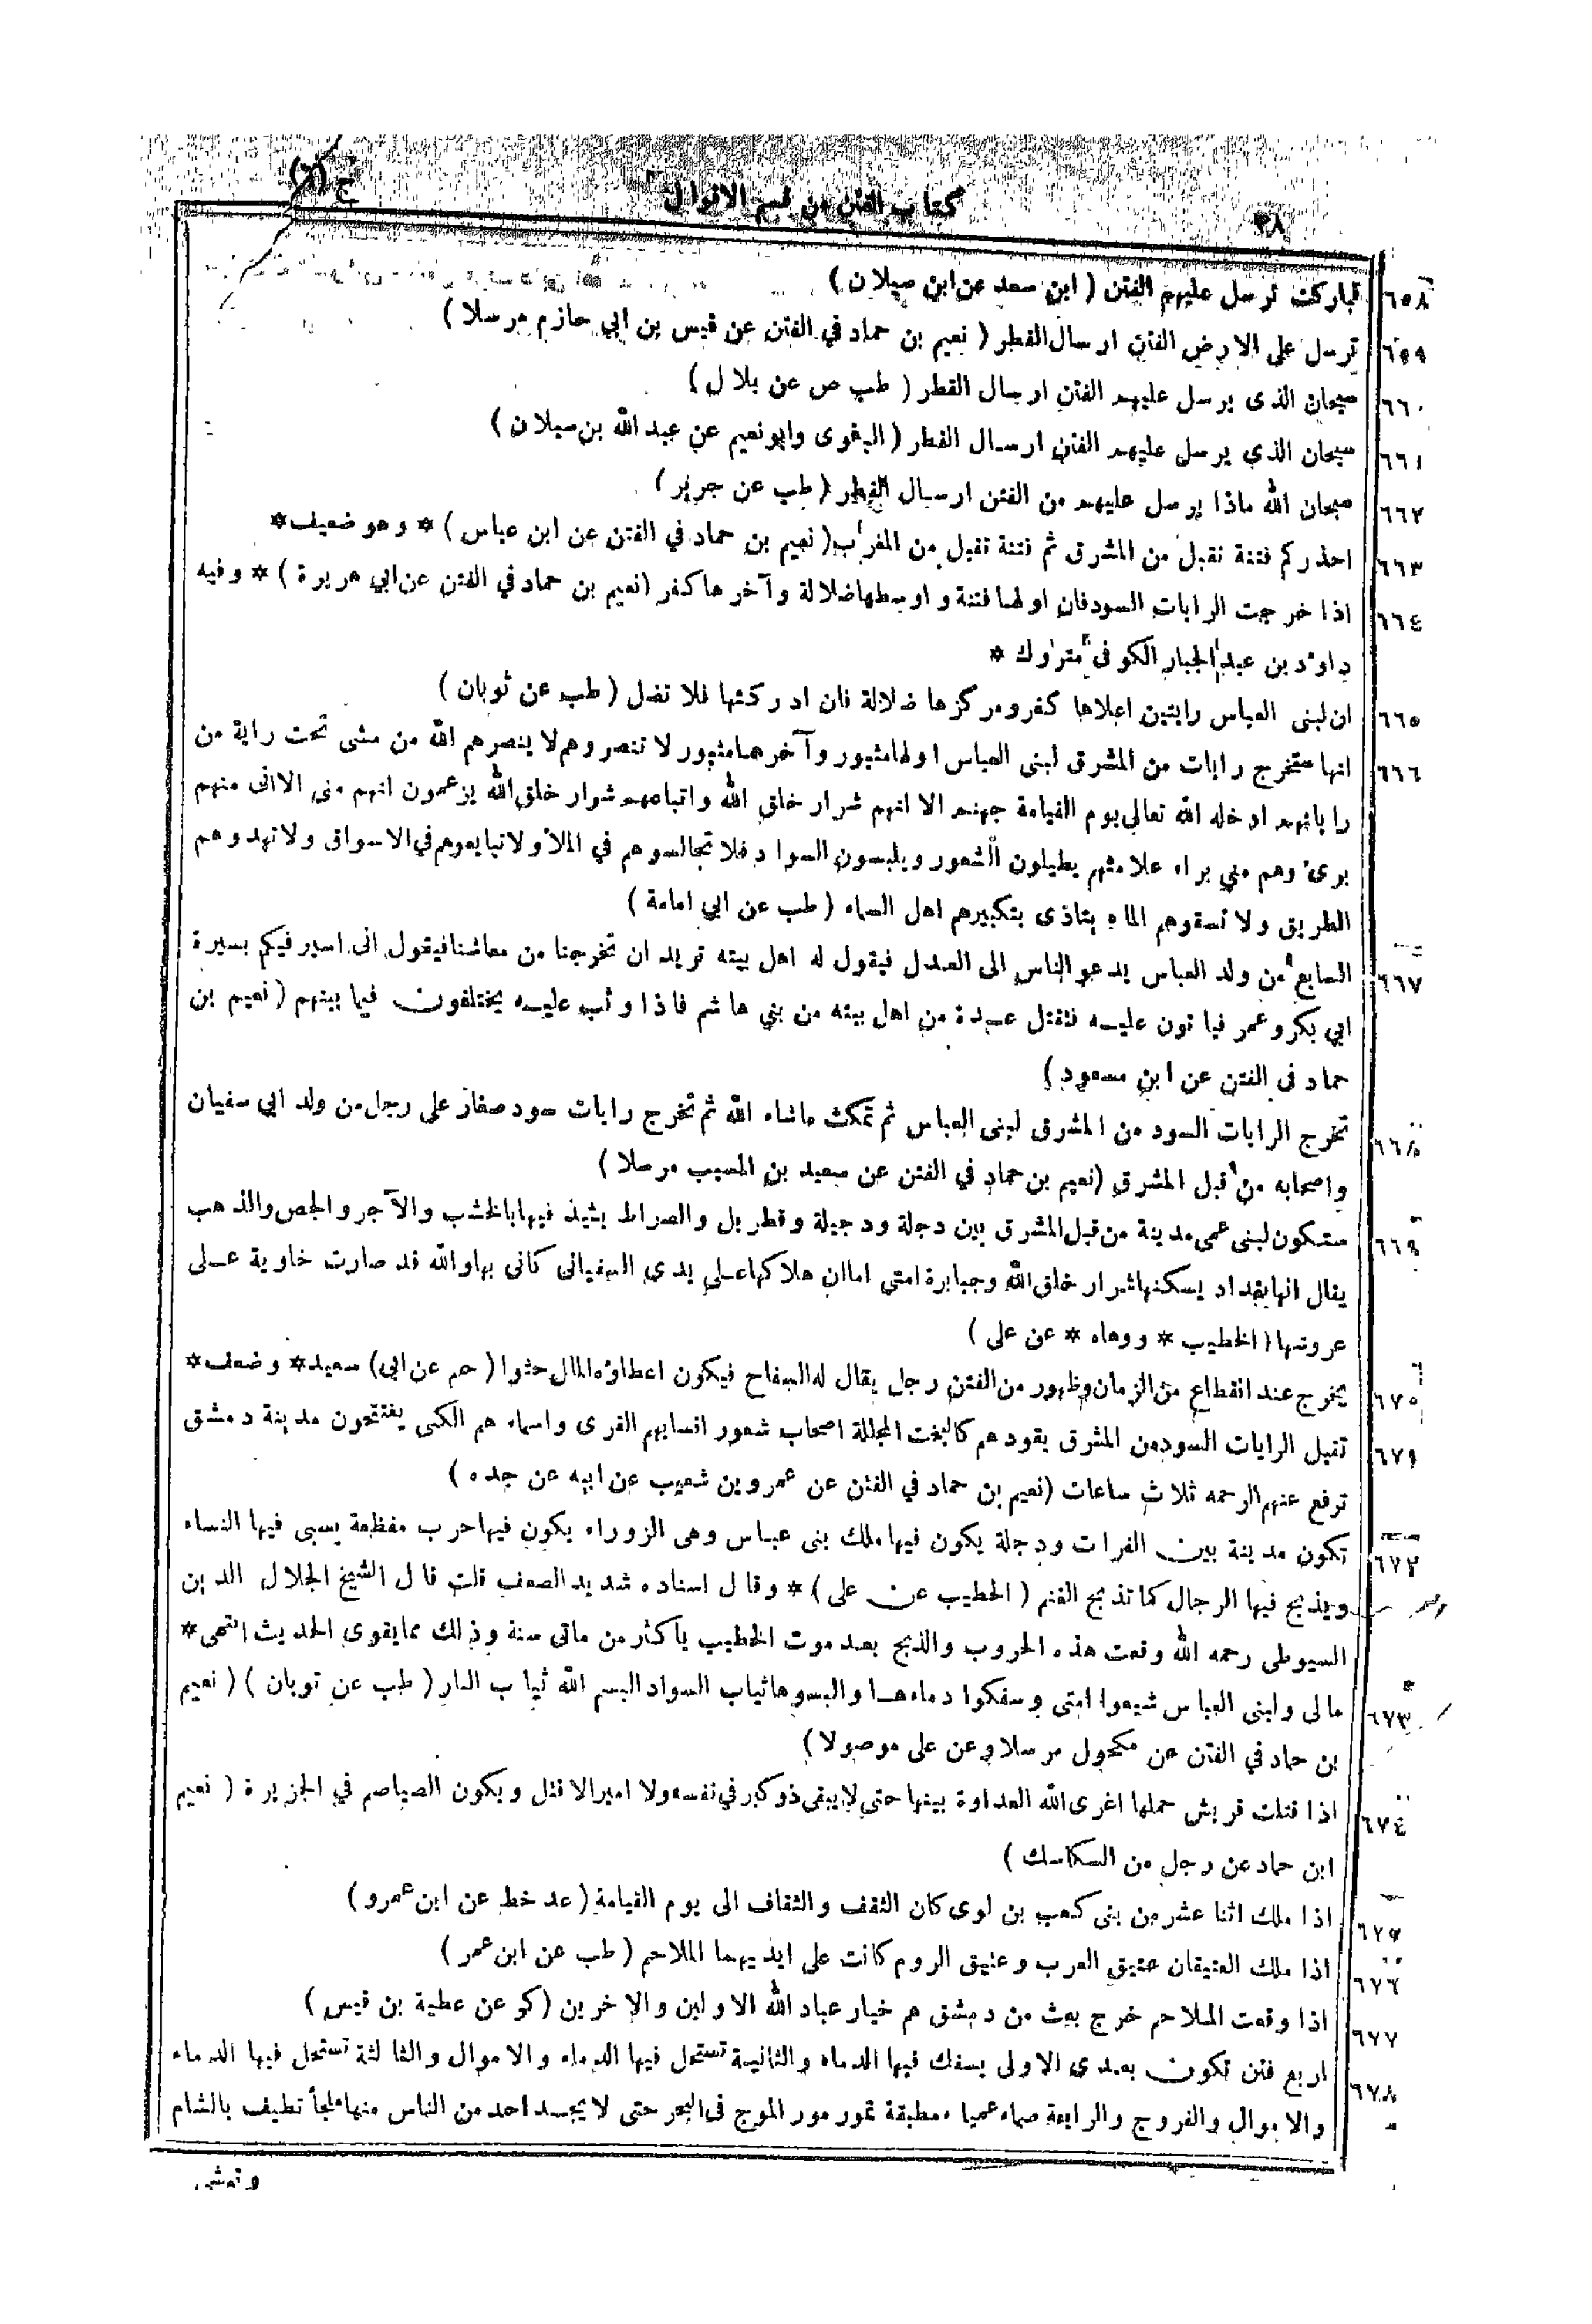 كتاب الفتن من قسم الاقوال
ج (٦)
٦٥٨ تباركت ترسل عليهم الفتن ( ابن سعد عن ابن سيلان )
٦٥٩ ترسل على الارض الفتن ارسال القطر ( نعيم بن حماد في الفتن عن قيس بن ابي حازم مرسلا )
٦٦٠ سبحان الذى يرسل عليهم الفتن ارسال القطر ( طب ص عن بلال )
٦٦١ سبحان الذي يرسل عليهم الفتن ارسال القطر ( البغوى وابو نعيم عن عبد الله بن سيلان )
٦٦٢ سبحان الله ماذا يرسل عليهم من الفتن ارسال القطر ( طب عن جرير )
٦٦٣ احذركم فتنة تقبل من المشرق ثم فتنة تقبل من المغرب ( نعيم بن حماد في الفتن عن ابن عباس ) * وهو ضعيف *
٦٦٤ اذا خرجت الرايات السود فان اولها فتنة و اوسطها ضلالة وآخرها كفر ( نعيم بن حماد في الفتن عن ابي هريرة ) * وفيه
داود بن عبد الجبار الكوفى متروك *
٦٦٥ ان لبنى العباس رايتين اعلاها كفر ومركزها ضلالة فان ادركتها فلا تضل ( طب عن ثوبان )
٦٦٦ انها ستخرج رايات من المشرق لبنى العباس اولها مثبور وآخرها مثبور لا تنصروهم لا ينصرهم الله من مشى تحت راية من
راياتهم ادخله الله تعالى يوم القيامة جهنم الا انهم شرار خلق الله واتباعهم شرار خلق الله يزعمون انهم منى الا انى منهم
برئ وهم مني براء علامتهم يطيلون الشعور ويلبسون السواد فلا تجالسوهم في الملأ ولا تبايعوهم في الاسواق ولا تهدوهم
الطريق ولا تسقوهم الماء يتاذى بتكبيرهم اهل السماء ( طب عن ابي امامة )
٦٦٧ السابع من ولد العباس يدعو الناس الى العدل فيقول له اهل بيته تريد ان تخرجنا من معاشنا فيقول انى اسير فيكم بسيرة
ابي بكر وعمر فيا تون عليه فتقتل عدة من اهل بيته من بني هاشم فاذا وثب عليه يختلفون فيما بينهم ( نعيم بن
حماد فى الفتن عن ابن مسعود )
٦٦٨ تخرج الرايات السود من المشرق لبنى العباس ثم تمكث ماشاء الله ثم تخرج رايات سود صغار على رجل من ولد ابي سفيان
واصحابه من قبل المشرق ( نعيم بن حماد في الفتن عن سعيد بن المسيب مرسلا )
٦٦٩ ستكون لبنى عمى مدينة من قبل المشرق بين دجلة ودجيلة وقطربل والصراط يشيد فيها بالخشب والآجر والجص والذهب
يقال انها بغداد يسكنها شرار خلق الله وجبابرة امتى اما ان هلاكها على يدى السفيانى كانى بها والله قد صارت خاوية على
عروشها ( الخطيب * ووهاه * عن على )
٦٧٠ يخرج عند انقطاع من الزمان وظهور من الفتن رجل يقال له السفاح فيكون اعطاؤه المال حثوا ( حم عن ابى ) سعيد * وضعف *
٦٧١ تقبل الرايات السود من المشرق يقودهم كالبخت المجللة اصحاب شعور انسابهم القرى واسماءهم الكنى يفتتحون مدينة دمشق
ترفع عنهم الرحمه ثلاث ساعات ( نعيم بن حماد في الفتن عن عمرو بن شعيب عن ابيه عن جده )
٦٧٢ تكون مدينة بين الفرات ودجلة يكون فيها ملك بنى عباس وهى الزوراء يكون فيها حرب مفظعة يسبى فيها النساء
ويذبح فيها الرجال كما تذبح الغنم ( الخطيب عن على ) * وقال اسناده شديد الضعف قلت قال الشيخ الجلال الدين
السيوطى رحمه الله وقعت هذه الحروب والذبح بعد موت الخطيب باكثر من مائتى سنة وذلك مما يقوى الحديث انتهى *
٦٧٣ مالى ولبنى العباس شيعوا امتى وسفكوا دماءها والبسوها ثياب السواد البسهم الله ثياب النار ( طب عن ثوبان ) ( نعيم
بن حماد في الفتن عن مكحول مرسلا وعن على موصولا )
٦٧٤ اذا قتلت قريش حملها اغرى الله العداوة بينها حتى لا يبقى ذو كبر في نفسه ولا امير الا قتل ويكون الصياصم في الجزيرة ( نعيم
ابن حماد عن رجل من السكاسك )
٦٧٥ اذا ملك اثنا عشر من بنى كعب بن لوى كان النقف والنقاف الى يوم القيامة ( عد خط عن ابن عمرو )
٦٧٦ اذا ملك العتيقان عتيق العرب وعتيق الروم كانت على ايديهما الملاحم ( طب عن ابن عمر )
٦٧٧ اذا وقعت الملاحم خرج بعث من دمشق هم خيار عباد الله الاولين والاخرين ( كر عن عطية بن قيس )
٦٧٨ اربع فتن تكون بعدى الاولى يسفك فيها الدماء والثانية تستحل فيها الدماء والاموال والثالثة تستحل فيها الدماء
والاموال والفروج والرابعة صماء عمياء مطبقة تمور مور الموج فى البحر حتى لا يجد احد من الناس منها ملجأ تطيف بالشام
وتغشى